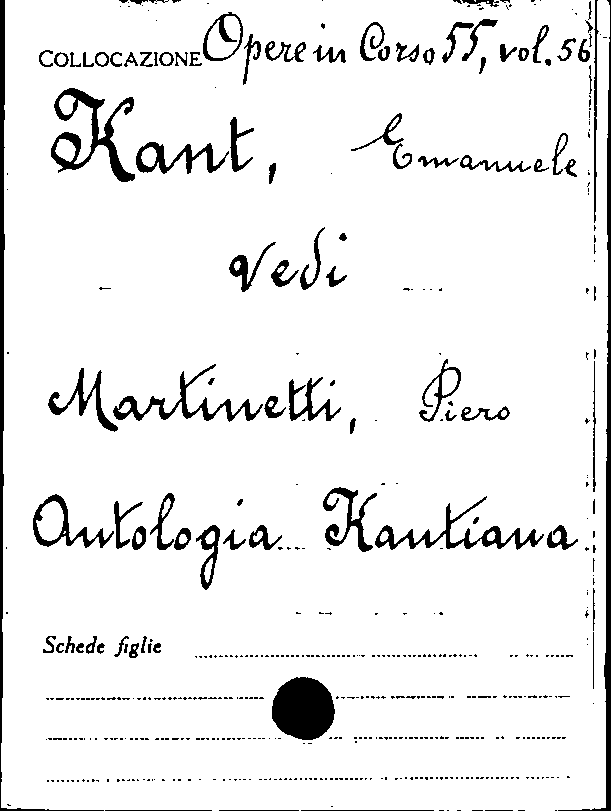 COLLOCAZIONE Opere in Corso 55, vol. 56
Kant, Emanuele
vedi
Martinetti, Piero
Antologia Kantiana
Schede figlie